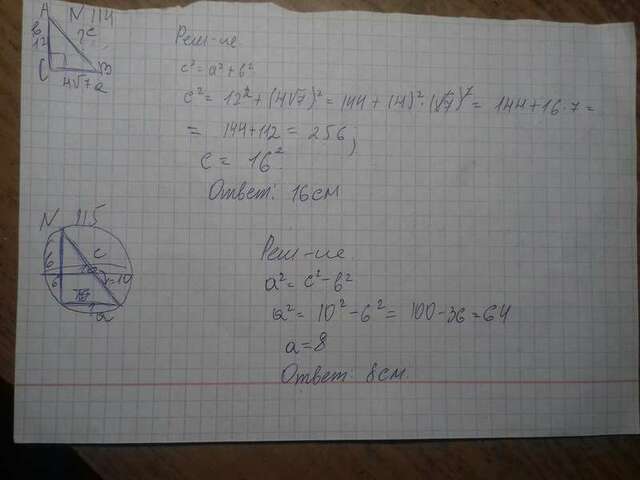 N 114
A
в 12
?с
С
В
4√7 а
Реш-ие
c² = a² + b²
c² = 12² + (4√7)² = 144 + (4)² · (√7)² = 144 + 16 · 7 =
= 144 + 112 = 256;
c = 16²
Ответ: 16 см
N 115
в
с
6
10
? а
Реш-ие
a² = c² - b²
a² = 10² - 6² = 100 - 36 = 64
a = 8
Ответ: 8 см.